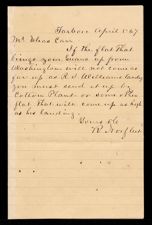 Tarboro April 1867
Mr. Elias Carr
If the flat that
brings your Guano up from
Washington will not come as
far up as R. S. Williams landing
you must send it up by
Cotton Plant or some other
flat that will come up as high
as his landing.
Yours &c
R. Norfleet